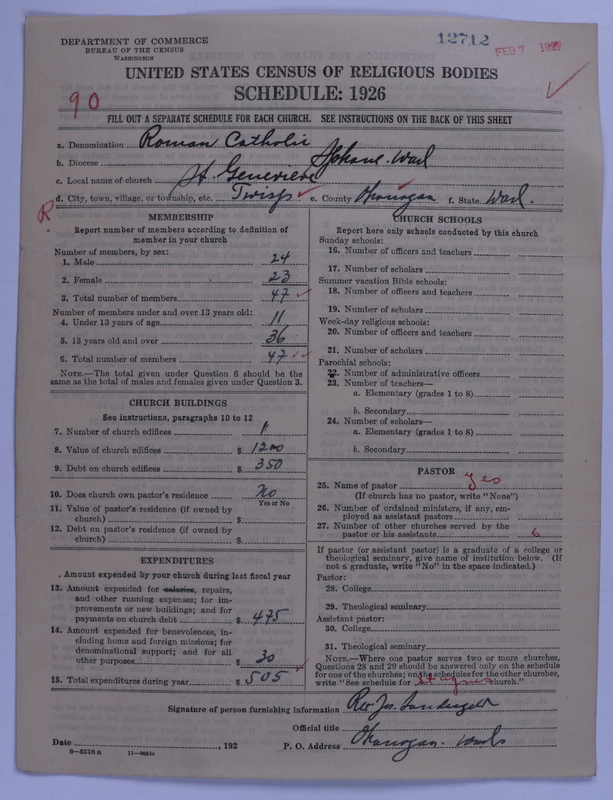 DEPARTMENT OF COMMERCE
BUREAU OF THE CENSUS
WASHINGTON
12712
FEB 7
UNITED STATES CENSUS OF RELIGIOUS BODIES
SCHEDULE: 1926
90
FILL OUT A SEPARATE SCHEDULE FOR EACH CHURCH. SEE INSTRUCTIONS ON THE BACK OF THIS SHEET
a. Denomination Roman Catholic
b. Diocese Spokane. Wash
c. Local name of church St. Genevieve
d. City, town, village, or township, etc. Twisp e. County Okanogan f. State Wash.
R
MEMBERSHIP
Report number of members according to definition of
member in your church
Number of members, by sex:
1. Male 24
2. Female 23
3. Total number of members 47
Number of members under and over 13 years old:
4. Under 13 years of age 11
5. 13 years old and over 36
6. Total number of members 47
NOTE.—The total given under Question 6 should be the
same as the total of males and females given under Question 3.
CHURCH BUILDINGS
See instructions, paragraphs 10 to 12
7. Number of church edifices
8. Value of church edifices $ 1200
9. Debt on church edifices $ 350
10. Does church own pastor's residence No
Yes or No
11. Value of pastor's residence (if owned by
church) $
12. Debt on pastor's residence (if owned by
church) $
EXPENDITURES
Amount expended by your church during last fiscal year
13. Amount expended for salaries, repairs,
and other running expenses; for im-
provements or new buildings; and for
payments on church debt $ 475
14. Amount expended for benevolences, in-
cluding home and foreign missions; for
denominational support; and for all
other purposes $ 30
15. Total expenditures during year $ 505
CHURCH SCHOOLS
Report here only schools conducted by this church
Sunday schools:
16. Number of officers and teachers
17. Number of scholars
Summer vacation Bible schools:
18. Number of officers and teachers
19. Number of scholars
Week-day religious schools:
20. Number of officers and teachers
21. Number of scholars
Parochial schools:
22. Number of administrative officers
23. Number of teachers—
a. Elementary (grades 1 to 8)
b. Secondary
24. Number of scholars—
a. Elementary (grades 1 to 8)
b. Secondary
PASTOR
25. Name of pastor yes
(If church has no pastor, write "None")
26. Number of ordained ministers, if any, em-
ployed as assistant pastors
27. Number of other churches served by the
pastor or his assistants 6
If pastor (or assistant pastor) is a graduate of a college or
theological seminary, give name of institution below. (If
not a graduate, write "No" in the space indicated.)
Pastor:
28. College
29. Theological seminary
Assistant pastor:
30. College
31. Theological seminary
NOTE.—Where one pastor serves two or more churches,
Questions 28 and 29 should be answered only on the schedule
for one of the churches; on the schedules for the other churches,
write "See schedule for St Agnes church."
Signature of person furnishing information Rev Jos.
Official title
Date , 192 P. O. Address Okanogan. Wash
8—5518 a